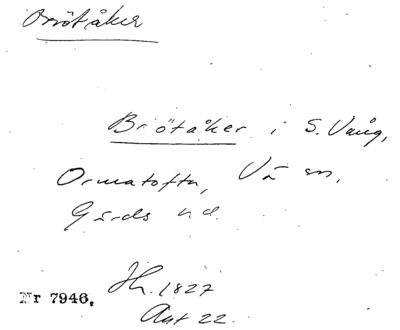 Brötåker
Brötåker i S. Vång,
Ormatofta, Vä sn,
Gärds hd.
Nr 7946. Jh. 1827
Akt 22.